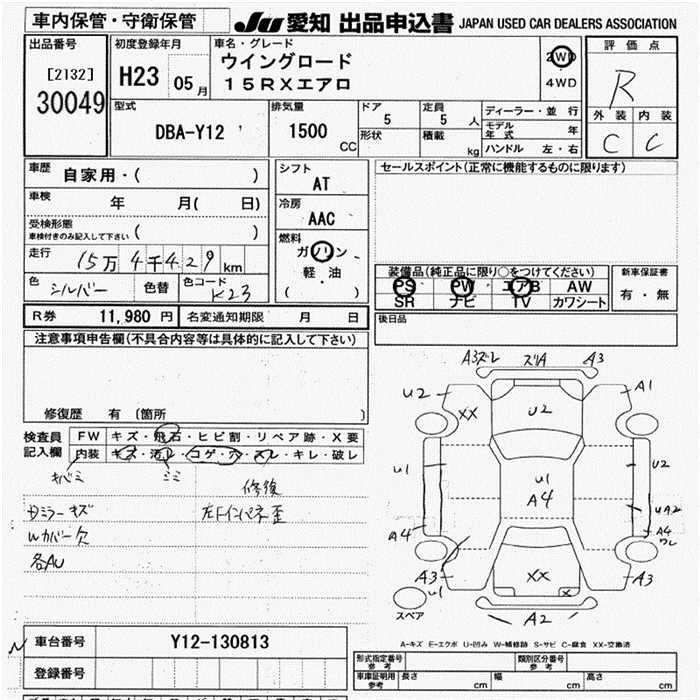 車内保管・守衛保管
JU 愛知 出品申込書 JAPAN USED CAR DEALERS ASSOCIATION
出品番号
[2132]
30049
初度登録年月
H23 05 月
車名・グレード
ウイングロード
15RXエアロ
2WD
4WD
評価点
R
外装 内装
C C
型式
DBA-Y12
排気量
1500 CC
ドア
5
形状
定員
5 人
積載
kg
ディーラー・並行
モデル年式 年
ハンドル 左・右
車歴
自家用・( )
車検
年 月( 日)
受検形態
車検付きのみ記入して下さい ( )
走行
15万4千429 km
色
シルバー
色替
色コード
K23
シフト
AT
冷房
AAC
燃料
ガソリン
軽・油
( )
セールスポイント(正常に機能するものに限ります)
装備品(純正品に限り○をつけてください)
PS PW エアB AW
SR ナビ TV カワシート
新車保証書
有・無
後日品
R券 11,980 円 名変通知期限 月 日
注意事項申告欄(不具合内容等は具体的に記入して下さい)
修復歴 有 〔箇所 〕
検査員
記入欄
FW キズ・飛石・ヒビ割・リペア跡・X要
内装 キズ・汚レ・コゲ・穴・スレ・キレ・破レ
キバミ ミミ
修復
ミラーキズ
左Fインパネ歪
Wカバー欠
各AU
A3ズレ ズリA A3
U2 A1
XX
U2
U1 U2
U1
A4
UA2
A4 A4
ワレ
A3 U1
XX
X
A3
スペア
A2
A-キズ E-エクボ U-凹み W-補修跡 S-サビ C-腐食 XX-交換済
車台番号 Y12-130813
登録番号
型式指定番号
参考
類別区分番号
参考
車庫証明用
参考
長さ cm 幅 cm 高さ cm